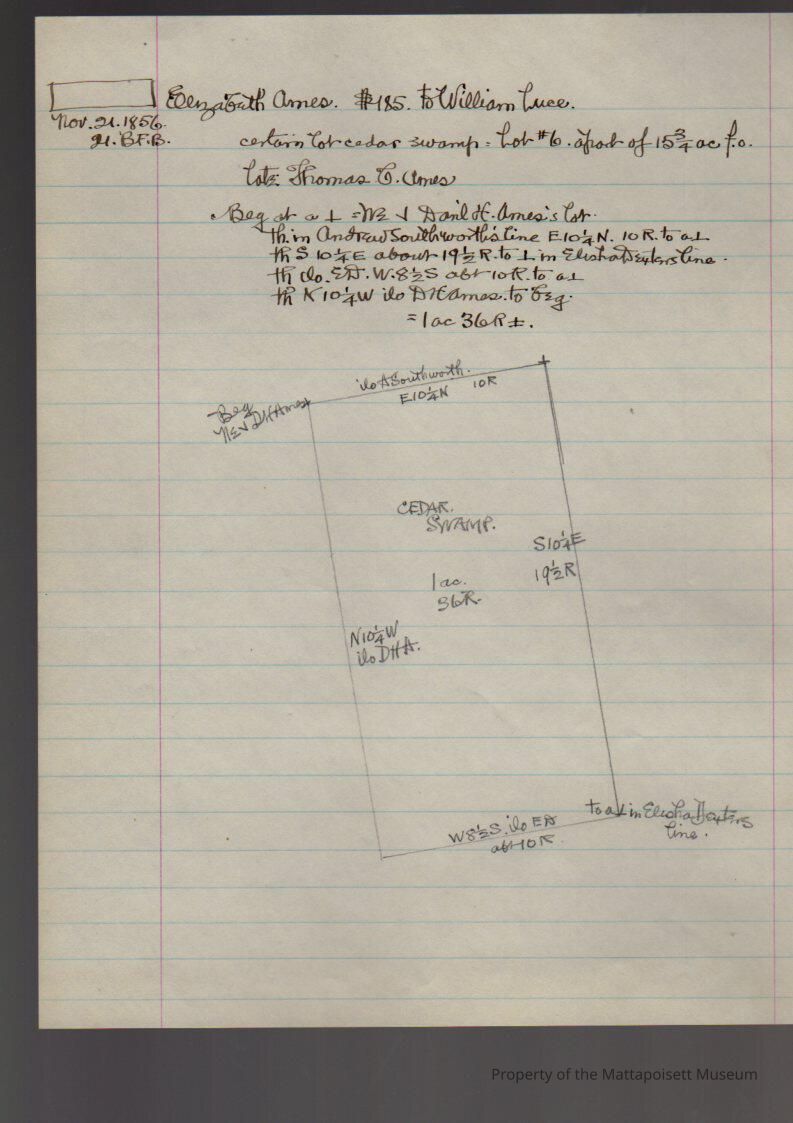 Elizabeth Ames. $185. to William Luce.
Nov. 21. 1856.
21. B.F.B.
certain lot cedar swamp = Lot #6. apart of 15 3/4 ac f.o.
late Thomas C. Ames
Beg at a ⊥ = NE √ Danl H. Ames's lot.
th. in Andrew Southworth's line E 10 1/4 N. 10 R. to a ⊥
th S 10 1/4 E about 19 1/2 R. to ⊥ in Elisha Dexters line.
th ilo. ED. W. 8 1/2 S abt 10 R. to a ⊥
th N 10 1/4 W ilo DH Ames. to beg.
= 1 ac 36 R ±.
ilo A Southworth.
E 10 1/4 N 10 R
Beg
NE √ DH Ames
CEDAR.
SWAMP.
S 10 1/4 E
19 1/2 R
1 ac.
36 R.
N 10 1/4 W
ilo DHA.
to a ⊥ in Elisha Dexters
line.
W 8 1/2 S. ilo ED
abt 10 R.
Property of the Mattapoisett Museum